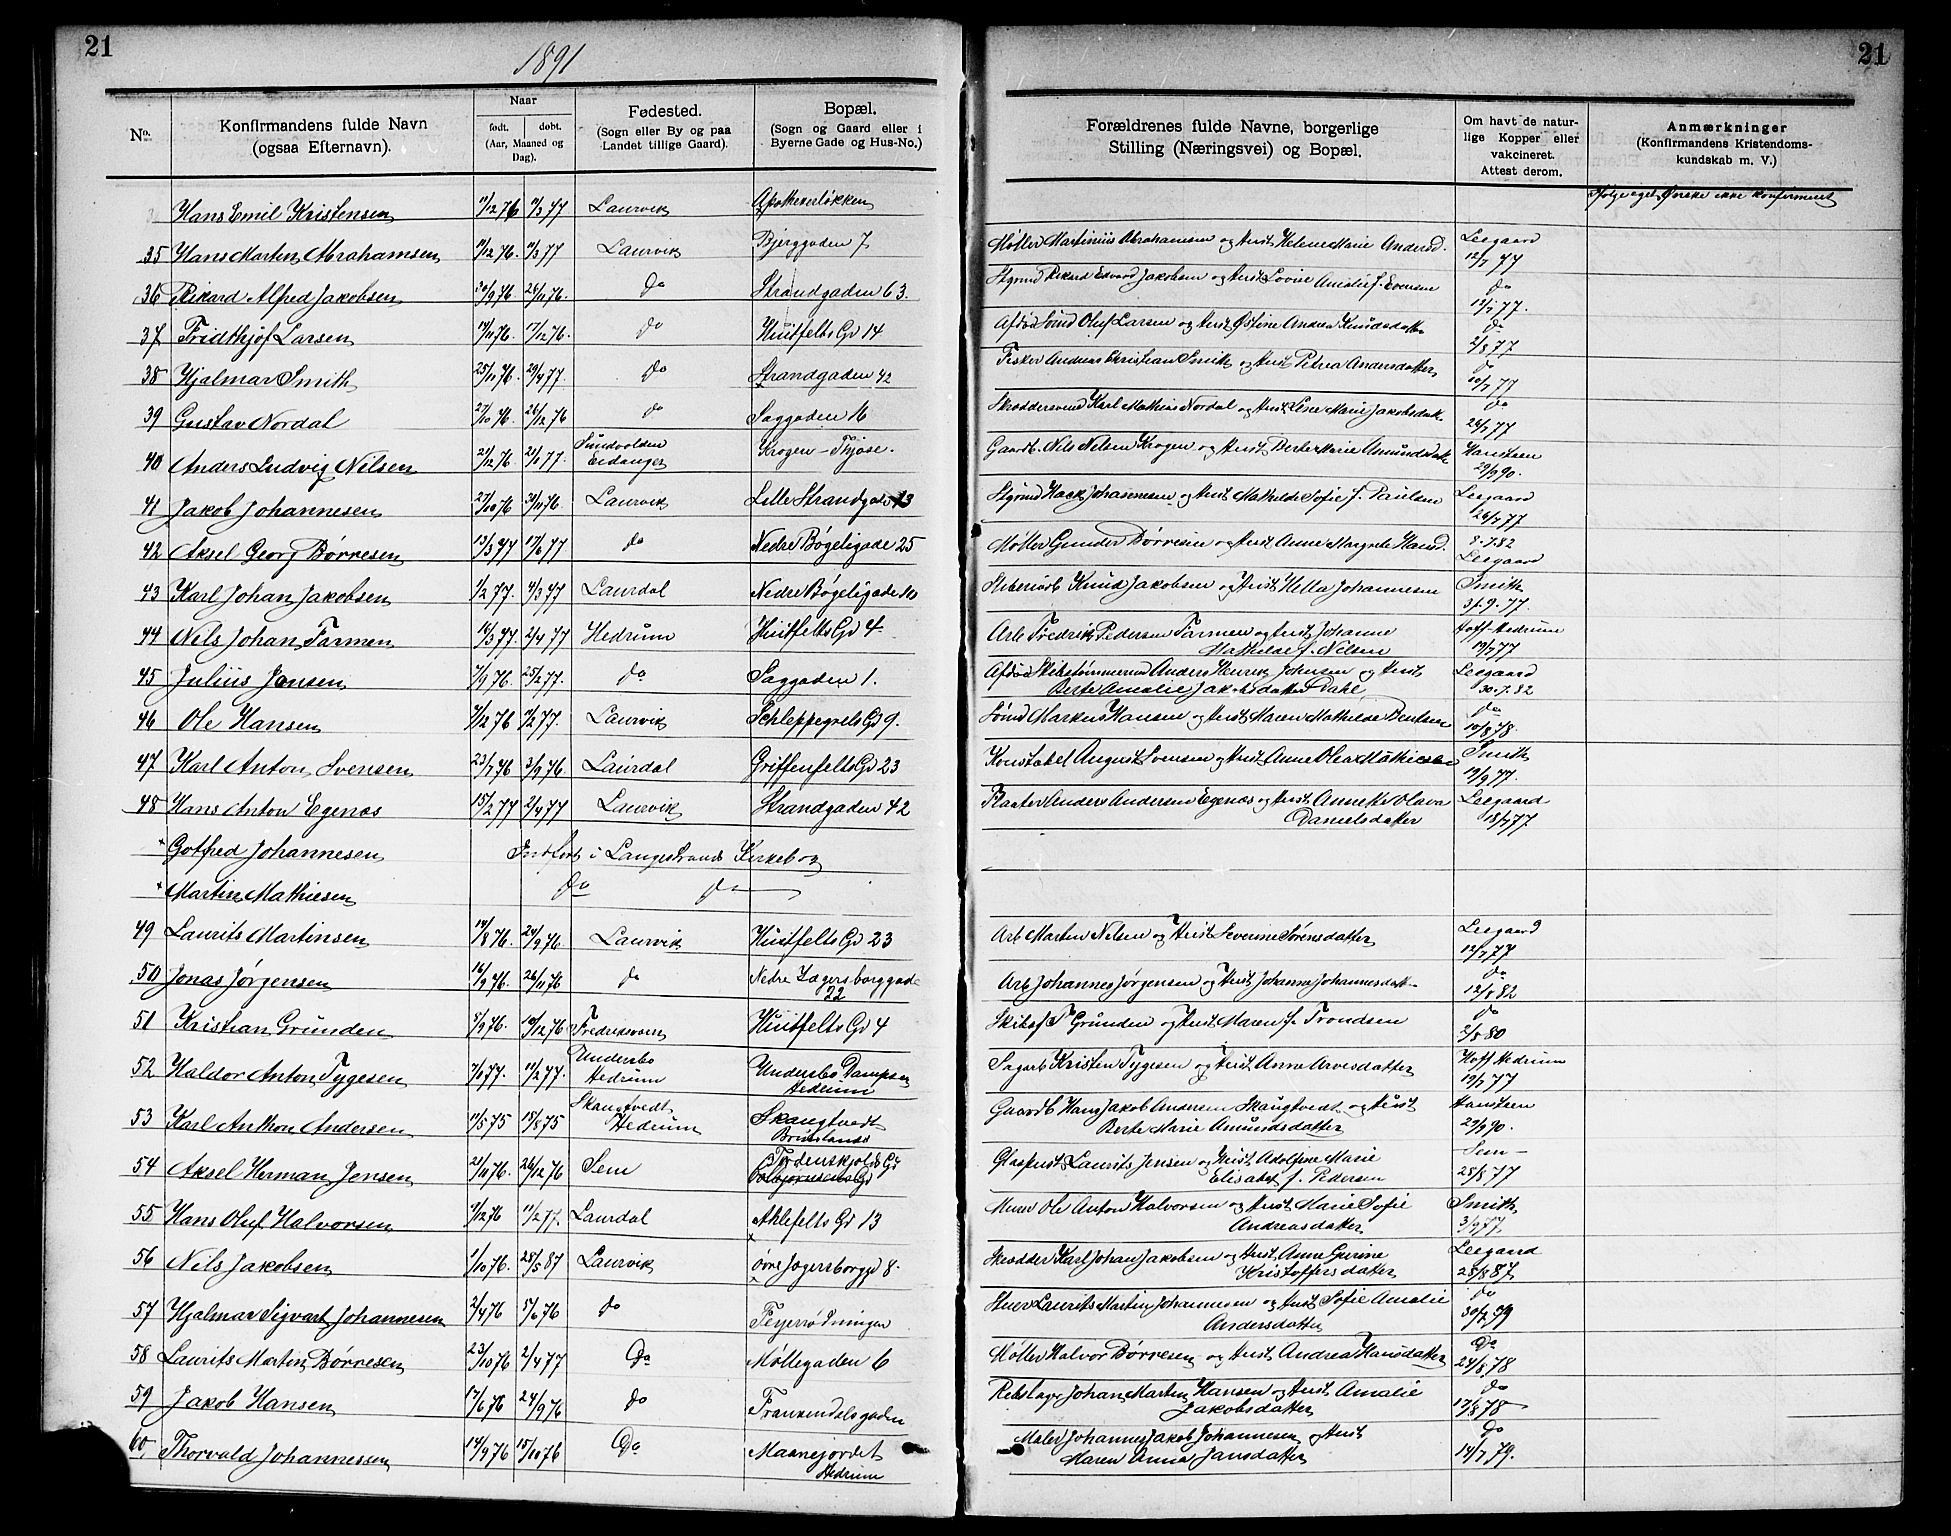 21
1891
21
No.
Konfirmandens fulde Navn
(ogsaa Efternavn).
Naar
født.
døbt.
(Aar, Maaned og
Dag).
Fødested.
(Sogn eller By og paa
Landet tillige Gaard).
Bopæl.
(Sogn og Gaard eller i
Byerne Gade og Hus-No.)
Forældrenes fulde Navne, borgerlige
Stilling (Næringsvei) og Bopæl.
Om havt de natur-
lige Kopper eller
vakcineret.
Attest derom.
Anmærkninger
(Konfirmandens Kristendoms-
kundskab m. V.)
Hans Emil Kristensen 11/12 76 11/3 77 Laurvik Apothekerløkken Ifølge eget Ønske ikke konfirmeret
35 Hans Martin Abrahamsen 11/12 76. 11/3 77 Laurvik Bjerggaden 7 Møller Martinius Abrahamsen og Hust. Helene Marie Andersd. Leegaard
12/7 77
36 Rikard Alfred Jakobsen 30/9 76 26/11 76. do Strandgaden 63. Rikard Edvard Jakobsen og Hust. Lovise Amalie f. Evensen do
12/7 77.
37 Fridthjof Larsen 17/12 76. do Huitfelts Gd 14 Afdød Sømd Oluf Larsen og Hust. Andrea Knudsdatter do
2/8 77
38 Hjalmar Smith 25/11 76. 29/4 77. do Strandgaden 42 Fisker Anders Christian Smith og Hust. Petrea Andersdatter do
10/7 77
39 Gustav Nordal 27/10 76. 26/12 76 do Saggaden 16 Skræddersvend Karl Mathias Nordal og Hust. Lene Marie Jakobsdatt. do
24/7 77
40 Anders Ludvig Nelsen 21/12 76. 21/1 77. Sundvolden
Eidanger Krogen - Thjøse. Gaardb. Nils Nelsen Krogen og Hust. Berte Marie Amundsdatt Hanssen
29/9 90.
41 Jakob Johannesen 27/10 76 30/11 76. Laurvik Lille Strandgade 13 Johannesen og Hust. Mathilde Sofie f. Paulsen Leegaard
26/7 77
42 Aksel Georg Børresen 13/3 77 17/6 77 do Nedre Bøgeligade 25 Møller Gunder Børresen og Hust. Anne Margrete Hansd. 8-7.82
Leegaard
43 Karl Johan Jakobsen 1/2 77. 4/3 77 Laurdal Nedre Bøgeligade 10 Knud Jakobsen og Hust. Hella Johannesen Smith
31.9.77.
44 Nels Johan Farmen 16/3 77. 2/4 77 Hedrum Huitfelts Gd 4. Arb. Fredrik Pedersen Farmen og Hust. Johanne
Mathilde f. Nelsen Hoff-Hedrum
19/7 77
45 Julius Jensen 7/9 76. 25/2 77. do Saggaden 1. Afdød Skibstømmermd Anders Henrik Johnsen og Hust.
Berte Amalie Jakobsdatter Dahl Leegaard
30.7.82
46 Ole Hansen 7/12 76 11/2 77. Laurvik Schleppegrels Gd 9. Sømd Markus Hansen og Hust. Maren Mathilde Bentsen do
10/8 78.
47 Karl Anton Svensen 23/7 76 3/9 76. Laurdal Griffenfelts Gd 23 Konstabel August Svensen og Hust. Anne Olea Mathiesen Smith
19/9 77.
48 Hans Anton Egenæs 15/2 77 2/4 77 Laurvik Strandgaden 42 Anders Andersen Egenæs og Hust. Annette Olava
Danielsdatter Leegaard
18/7 77
+ Gotfred Johannesen Indført i Langestrands Kirkebog
+ Martin Mathiesen do do
49 Laurits Martinsen 14/8 76. 24/9 76. Laurvik Huitfelts Gd 23 Arb. Martin Nelsen og Hust. Severine Sørensdatter Leegaard
12/7 77
50 Jonas Jørgensen 16/9 76. 26/11 76 do Nedre Jagersborggade
22 Arb. Johannes Jørgensen og Hust. Johanne Johannesdatt. do
12/8 82
51 Kristian Grunden 5/9 76. 10/12 76 Fredriksværn Huitfelts Gd 4 Skibsf. T Grunden og Hust. Maren f. Trondsen do
2/8 80
52 Haldor Anton Tygesen 7/1 77. 11/2 77. Undersbo
Hedrum Undersbo Dampsag
Hedrum Sagarb. Kristen Tygesen og Hust. Anne Arvesdatter Hoff Hedrum
19/7 77
53 Karl Anthon Andersen 11/5 75 15/8 75 Skaugtvedt
Hedrum Skaugtvedt
Brunlanæs Gaardb. Hans Jakob Andersen Skaugtvedt og Hust.
Berte Marie Amundsdatter Hanssen
29/9 90.
54 Aksel Herman Jensen 21/11 76. 26/12 76 Sem Tordenskjolds Gd Glaspust. Laurits Jensen og Hust. Adolfine Marie
Elisabet f. Pedersen Sem -
25/8 77
55 Hans Oluf Halvorsen 9/12 76 11/2 77. Laurdal Ahlefelts Gd 13 Murer Ole Anton Halvorsen og Hust. Marie Sofie
Andreasdatter Smith
3/9 77.
56 Nils Jakobsen 1/10 76. 28/5 87 Laurvik Øvre Jagersborggd 8. Skredder Karl Johan Jakobsen og Hust. Anne Gurine
Kristoffersdatter Leegaard
28/8 87
57 Hjalmar Sigvart Johannesen 2/4 76 5/6 76 do Laurits Martin Johannesen og Hust. Sofie Amalie
Andersdatter do
58 Laurits Martin Børresen 23/10 76 2/4 77 Do Møllegaden 6 Møller Halvor Børresen og Hust. Andrea Hansdatter Do
24/8 78
59 Jakob Hansen 17/6 76 24/9 76 do Frankendalsgaden Rebslager Johan Martin Hansen og Hust. Amalie
Jakobsdatter do
17/8 78
60 Thorvald Johannessen 14/9 76 15/10 76 Do Maanejordet
Hedrum Maler Johannes Jakob Johannesen og Hust.
Maren Anna Jansdatter Do
14/7 79.